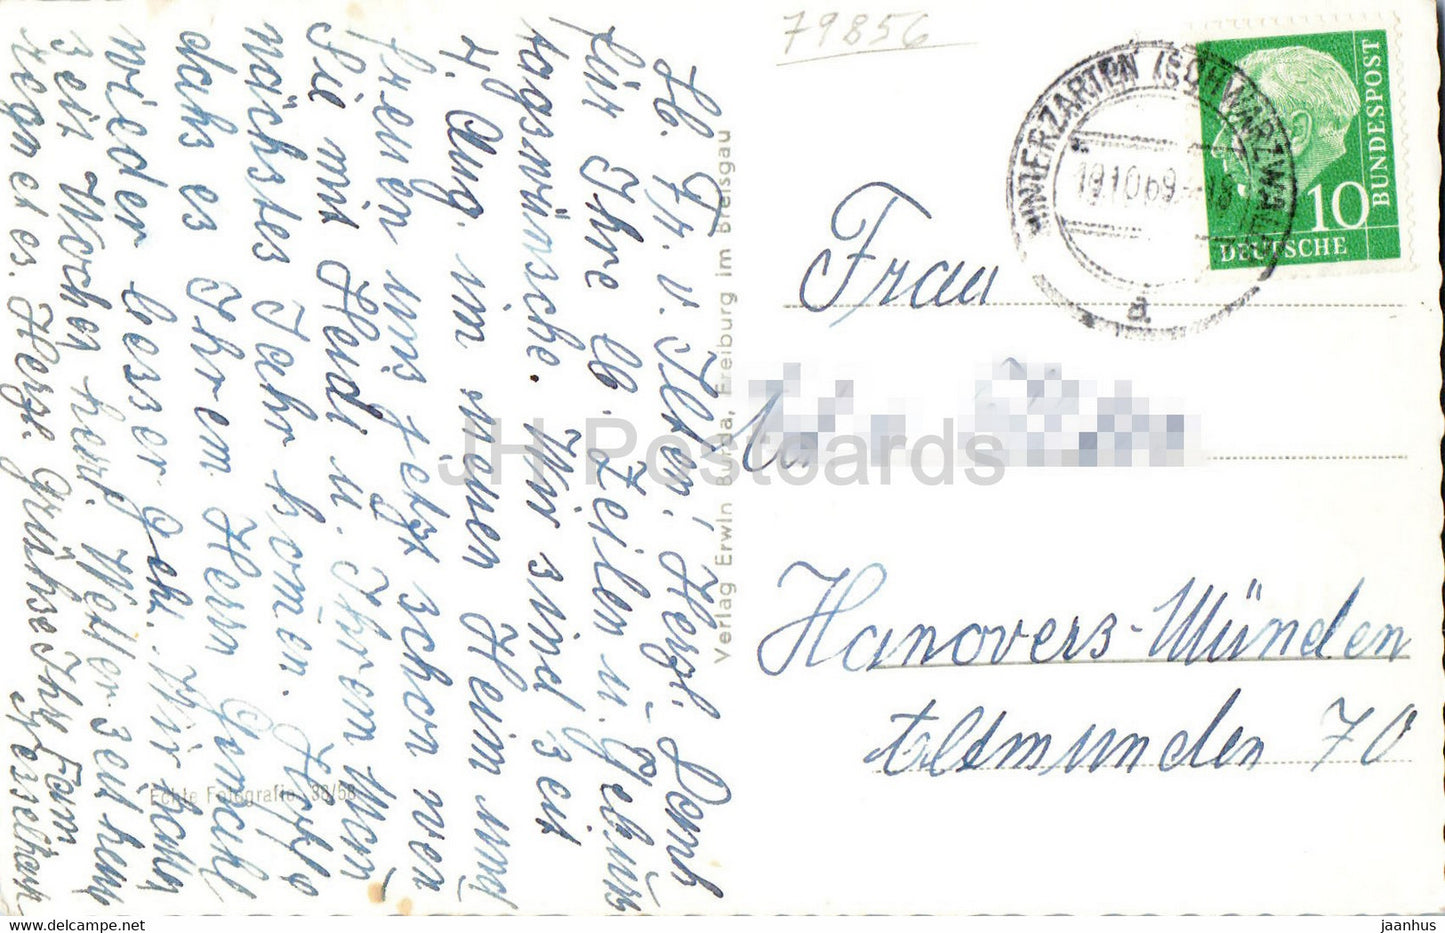 79856
Lb. Fr. v. Ilten! Herzl. Dank
für Ihre lb. Zeilen u. Geburts
tagswünsche. Wir sind seit
4. Aug. im neuen Heim und
freuen uns jetzt schon wen
Sie mit Heidi u. Ihrem Man
nächstes Jahr komen. Hoffe
dahs es Ihrem Hern Gemahl
wieder besser geht. Wir haben
zeit Wochen herrl. Wetter seit heute
regnet es. Herzl. Grühse Ihre Fam
Verlag Erwin Burda, Freiburg im Breisgau
Echte Fotografie 38/58
HINTERZARTEN (SCHWARZWALD)
19.10.69
a
DEUTSCHE
BUNDESPOST
10
Frau
Hanovers-Münden
Altmunden 70
JH Postcards
jaanhus
www.delcampe.net